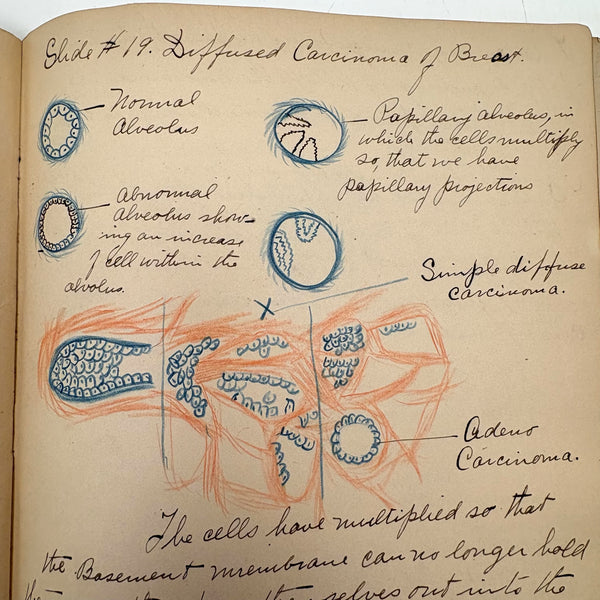 Slide # 19. Diffused Carcinoma of Breast.
Normal
Alveolus
Papillary alveolus, in
which the cells multiply
so, that we have
papillary projections
Abnormal
Alveolus show-
ing an increase
of cell within the
alvolus.
Simple diffuse
carcinoma.
X
Adeno
Carcinoma.
The cells have multiplied so that
the Basement membrane can no longer hold
the selves out into the